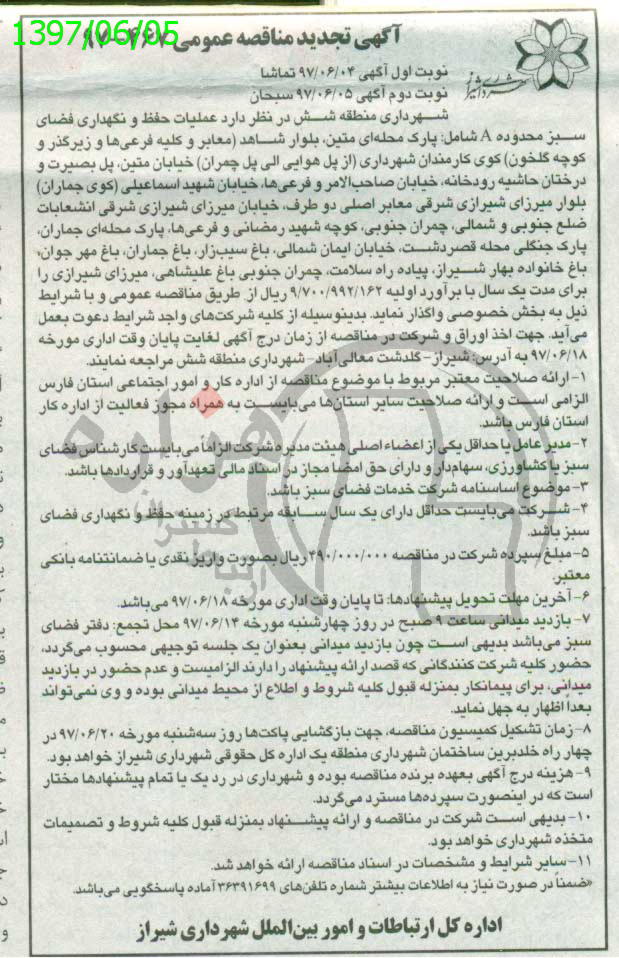 1397/06/05
آگهی تجدید مناقصه عمومی ۴۶۷-۹۷
نوبت اول آگهی ۹۷/۰۶/۰۴ تماشا
نوبت دوم آگهی ۹۷/۰۶/۰۵ سبحان
شهرداری شیراز
شهرداری منطقه شش در نظر دارد عملیات حفظ و نگهداری فضای
سبز محدوده A شامل: پارک محله‌ای متین، بلوار شاهد (معابر و کلیه فرعی‌ها و زیرگذر و
کوچه گلخون) کوی کارمندان شهرداری (از پل هوایی الی پل چمران) خیابان متین، پل بصیرت و
درختان حاشیه رودخانه، خیابان صاحب‌الامر و فرعی‌ها، خیابان شهید اسماعیلی (کوی جماران)
بلوار میرزای شیرازی شرقی معابر اصلی دو طرف، خیابان میرزای شیرازی شرقی انشعابات
ضلع جنوبی و شمالی، چمران جنوبی، کوچه شهید رمضانی و فرعی‌ها، پارک محله‌ای جماران،
پارک جنگلی محله قصردشت، خیابان ایمان شمالی، باغ سیب‌زار، باغ جماران، باغ مهر جوان،
باغ خانواده بهار شیراز، پیاده راه سلامت، چمران جنوبی باغ علیشاهی، میرزای شیرازی را
برای مدت یک سال با برآورد اولیه ۹/۷۰۰/۹۹۲/۱۶۲ ریال از طریق مناقصه عمومی و با شرایط
ذیل به بخش خصوصی واگذار نماید. بدینوسیله از کلیه شرکت‌های واجد شرایط دعوت بعمل
می‌آید. جهت اخذ اوراق و شرکت در مناقصه از زمان درج آگهی لغایت پایان وقت اداری مورخه
۹۷/۰۶/۱۸ به آدرس: شیراز- گلدشت معالی‌آباد- شهرداری منطقه شش مراجعه نمایند.
۱- ارائه صلاحیت معتبر مربوط با موضوع مناقصه از اداره کار و امور اجتماعی استان فارس
الزامی است و ارائه صلاحیت سایر استان‌ها می‌بایست به همراه مجوز فعالیت از اداره کار
استان فارس باشد.
۲- مدیر عامل یا حداقل یکی از اعضاء اصلی هیئت مدیره شرکت الزاماً می‌بایست کارشناس فضای
سبز یا کشاورزی، سهام‌دار و دارای حق امضا مجاز در اسناد مالی تعهدآور و قراردادها باشد.
۳- موضوع اساسنامه شرکت خدمات فضای سبز باشد.
۴- شرکت می‌بایست حداقل دارای یک سال سابقه مرتبط در زمینه حفظ و نگهداری فضای
سبز باشد.
۵- مبلغ سپرده شرکت در مناقصه ۴۹۰/۰۰۰/۰۰۰ ریال بصورت واریز نقدی یا ضمانتنامه بانکی
معتبر.
۶- آخرین مهلت تحویل پیشنهادها: تا پایان وقت اداری مورخه ۹۷/۰۶/۱۸ می‌باشد.
۷- بازدید میدانی ساعت ۹ صبح در روز چهارشنبه مورخه ۹۷/۰۶/۱۴ محل تجمع: دفتر فضای
سبز می‌باشد بدیهی است چون بازدید میدانی بعنوان یک جلسه توجیهی محسوب می‌گردد،
حضور کلیه شرکت کنندگانی که قصد ارائه پیشنهاد را دارند الزامیست و عدم حضور در بازدید
میدانی، برای پیمانکار بمنزله قبول کلیه شروط و اطلاع از محیط میدانی بوده و وی نمی‌تواند
بعداً اظهار به جهل نماید.
۸- زمان تشکیل کمیسیون مناقصه، جهت بازگشایی پاکت‌ها روز سه‌شنبه مورخه ۹۷/۰۶/۲۰ در
چهار راه خلدبرین ساختمان شهرداری منطقه یک اداره کل حقوقی شهرداری شیراز خواهد بود.
۹- هزینه درج آگهی بعهده برنده مناقصه بوده و شهرداری در رد یک یا تمام پیشنهادها مختار
است که در اینصورت سپرده‌ها مسترد می‌گردد.
۱۰- بدیهی است شرکت در مناقصه و ارائه پیشنهاد بمنزله قبول کلیه شروط و تصمیمات
متخذه شهرداری خواهد بود.
۱۱- سایر شرایط و مشخصات در اسناد مناقصه ارائه خواهد شد.
«ضمناً در صورت نیاز به اطلاعات بیشتر شماره تلفن‌های ۳۶۳۹۱۶۹۹ آماده پاسخگویی می‌باشد.
اداره کل ارتباطات و امور بین‌الملل شهرداری شیراز